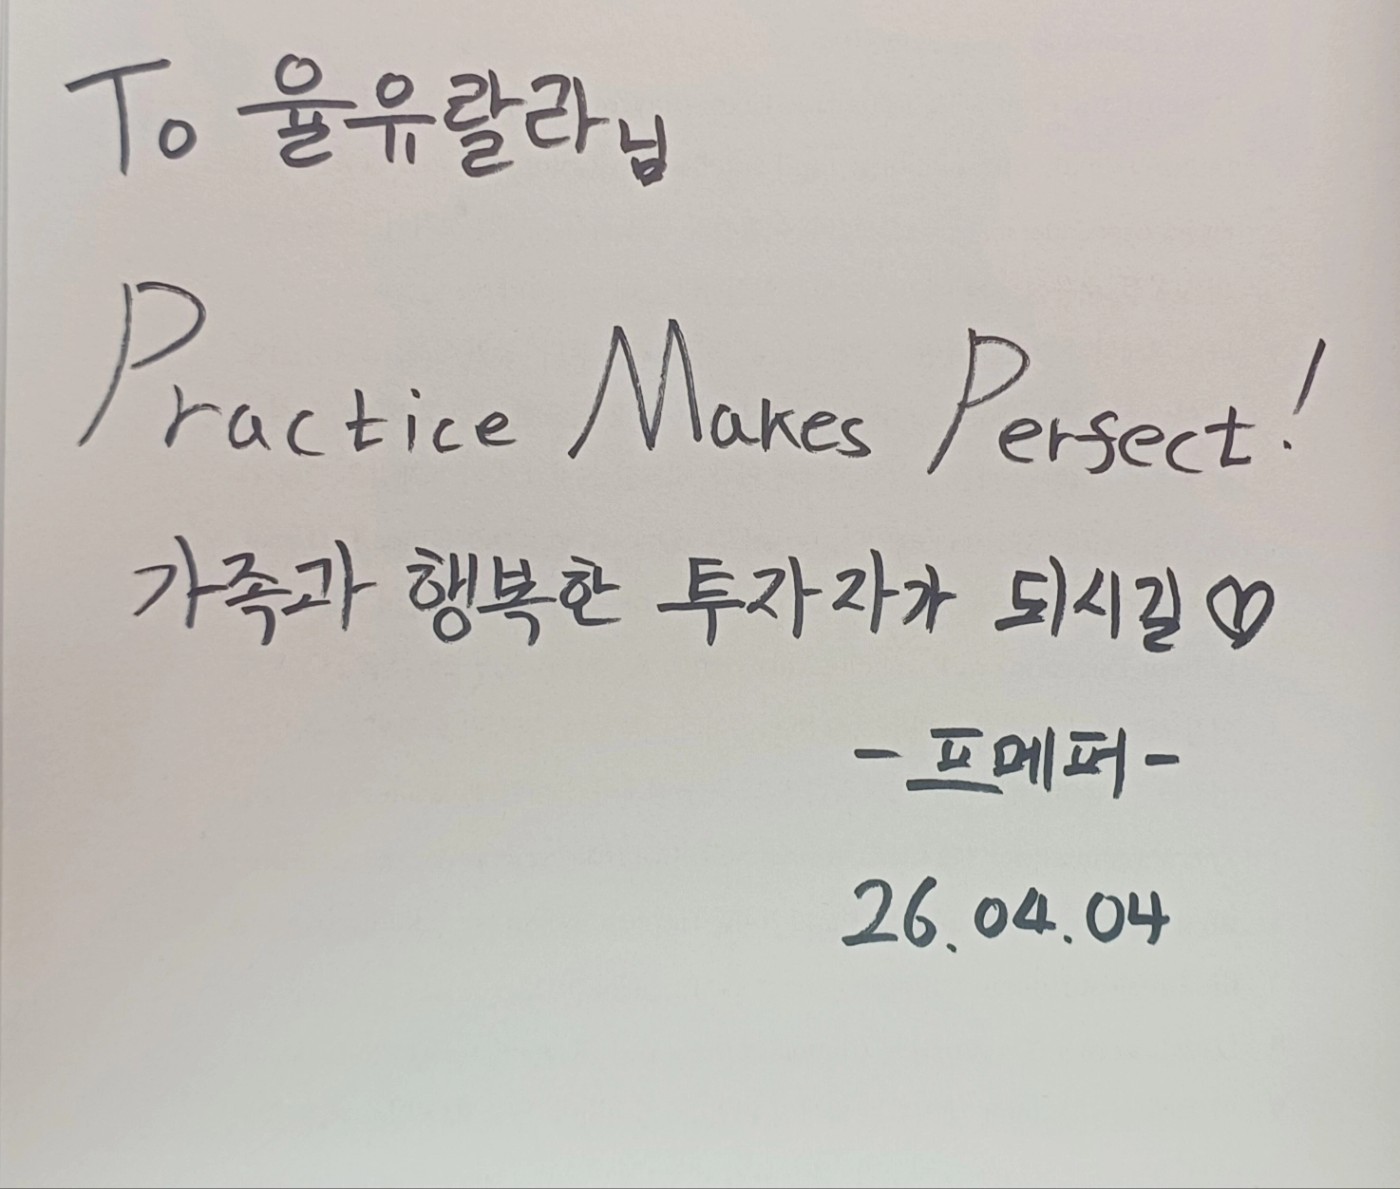 To 율유랄라님
Practice Makes Perfect!
가족과 행복한 투자자가 되시길♡
-프메퍼-
26.04.04